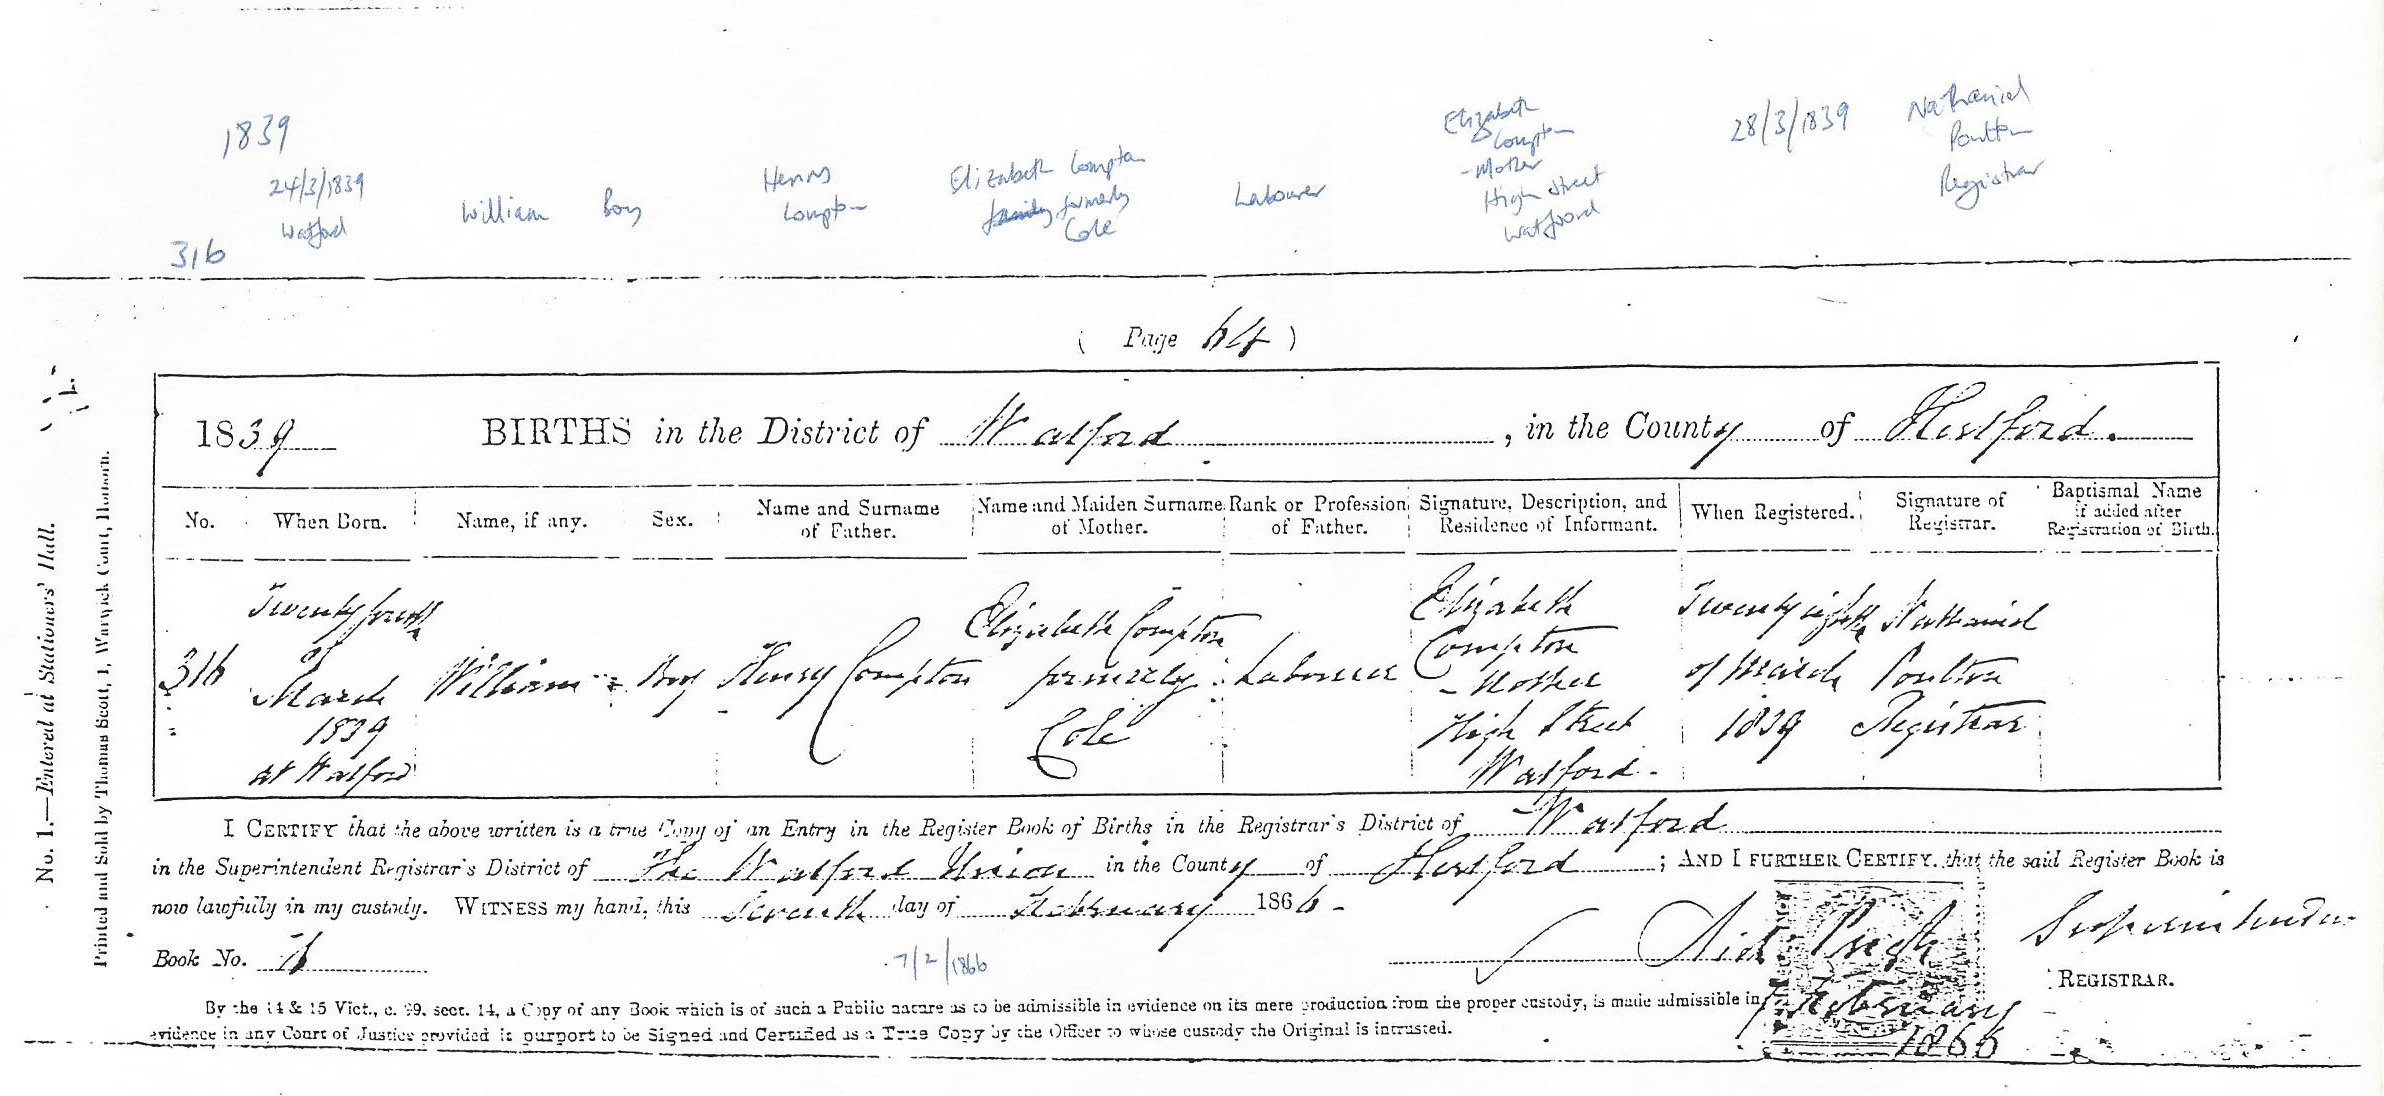 1839
24/3/1839
Watford
316
William
Boy
Henry
Compton
Elizabeth Compton
family formerly
Cole
Labourer
Elizabeth
Compton
- Mother
High Street
Watford
28/3/1839
Nathaniel
Poulton
Registrar
( Page 64 )
1839 BIRTHS in the District of Watford, in the County of Hertford.
No.
When Born.
Name, if any.
Sex.
Name and Surname
of Father.
Name and Maiden Surname
of Mother.
Rank or Profession
of Father.
Signature, Description, and
Residence of Informant.
When Registered.
Signature of
Registrar.
Baptismal Name
if added after
Registration of Birth.
316
Twenty fourth
of
March
1839
at Watford
William
Boy
Henry Compton
Elizabeth Compton
formerly
Cole
Labourer
Elizabeth
Compton
- Mother
High Street
Watford.
Twenty eighth
of March
1839
Nathaniel
Poulton
Registrar
I CERTIFY that the above written is a true Copy of an Entry in the Register Book of Births in the Registrar's District of Watford
in the Superintendent Registrar's District of The Watford Union in the County of Hertford; AND I FURTHER CERTIFY that the said Register Book is
now lawfully in my custody. WITNESS my hand, this Seventh day of February 1866
Pugh
Superintendent
REGISTRAR.
7 February
1866
Book No.
7/2/1866
By the 14 & 15 Vict., c. 99. sect. 14, a Copy of any Book which is of such a Public nature as to be admissible in evidence on its mere production from the proper custody, is made admissible in
evidence in any Court of Justice provided it purport to be Signed and Certified as a True Copy by the Officer to whose custody the Original is intrusted.
No. 1.—Entered at Stationers' Hall.
Printed and Sold by Thomas Scott, 1, Warwick Court, Holborn.